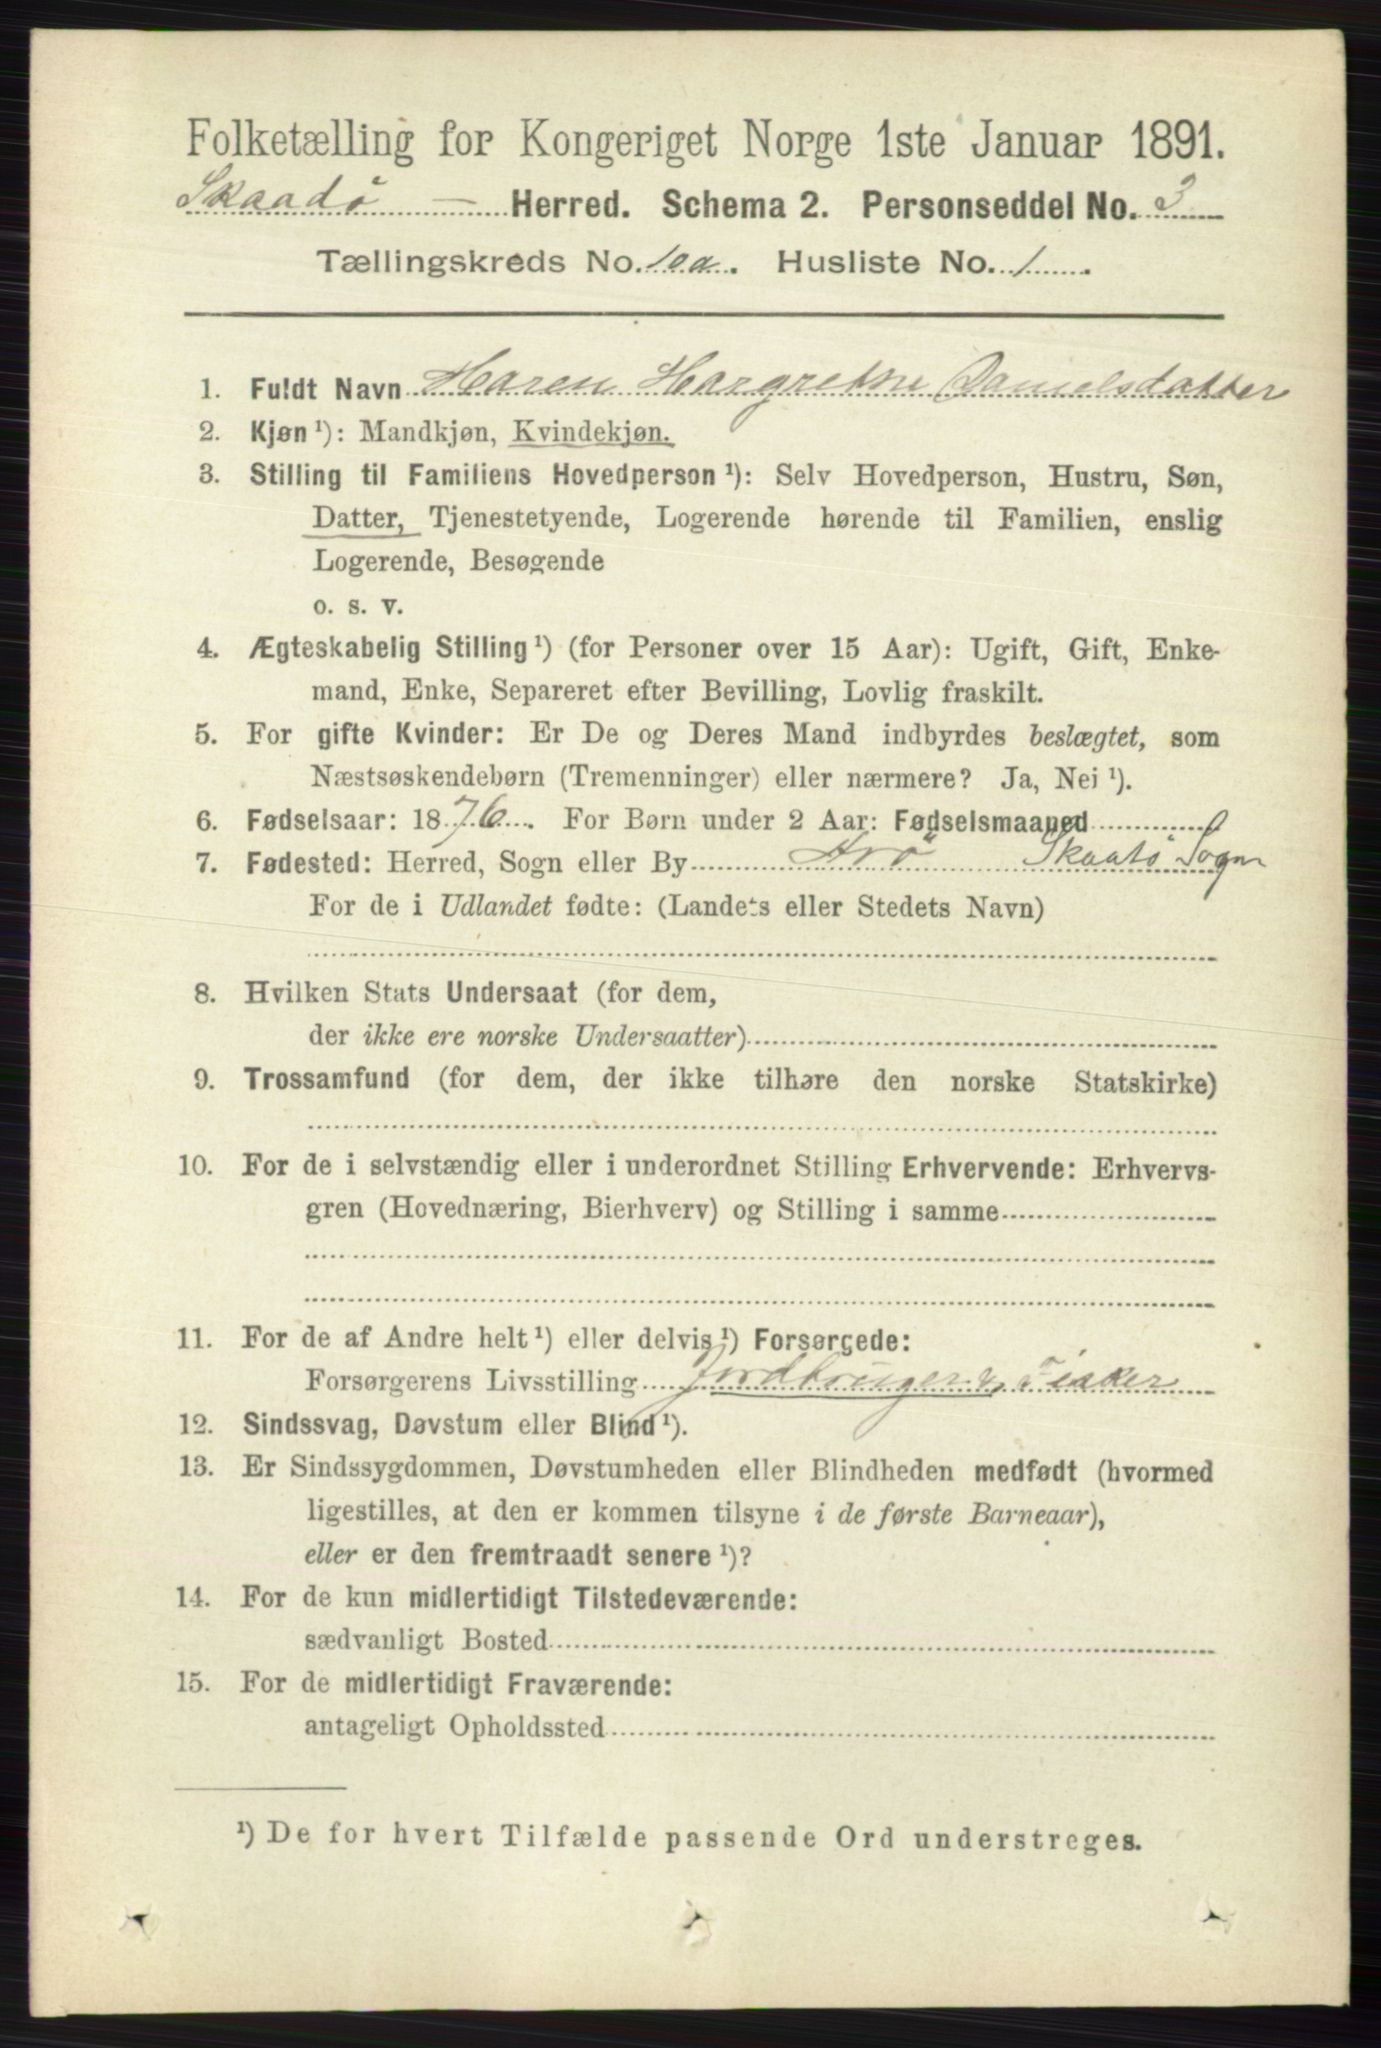 Folketælling for Kongeriget Norge 1ste Januar 1891.
Skaadø — Herred. Schema 2. Personseddel No. 3
Tællingskreds No. 10a. Husliste No. 1.
1. Fuldt Navn Maren Margrethe Danielsdatter
2. Kjøn ¹): Mandkjøn, Kvindekjøn.
3. Stilling til Familiens Hovedperson ¹): Selv Hovedperson, Hustru, Søn,
Datter, Tjenestetyende, Logerende hørende til Familien, enslig
Logerende, Besøgende
o. s. v.
4. Ægteskabelig Stilling ¹) (for Personer over 15 Aar): Ugift, Gift, Enke-
mand, Enke, Separeret efter Bevilling, Lovlig fraskilt.
5. For gifte Kvinder: Er De og Deres Mand indbyrdes beslægtet, som
Næstsøskendebørn (Tremenninger) eller nærmere? Ja, Nei ¹).
6. Fødselsaar: 1876. For Børn under 2 Aar: Fødselsmaaned
7. Fødested: Herred, Sogn eller By Arø Skaatø Sogn
For de i Udlandet fødte: (Landets eller Stedets Navn)
8. Hvilken Stats Undersaat (for dem,
der ikke ere norske Undersaatter)
9. Trossamfund (for dem, der ikke tilhøre den norske Statskirke)
10. For de i selvstændig eller i underordnet Stilling Erhvervende: Erhvervs-
gren (Hovednæring, Bierhverv) og Stilling i samme
11. For de af Andre helt ¹) eller delvis ¹) Forsørgede:
Forsørgerens Livsstilling Jordbruger & Fisker
12. Sindssvag, Døvstum eller Blind ¹).
13. Er Sindssygdommen, Døvstumheden eller Blindheden medfødt (hvormed
ligestilles, at den er kommen tilsyne i de første Barneaar),
eller er den fremtraadt senere ¹)?
14. For de kun midlertidigt Tilstedeværende:
sædvanligt Bosted
15. For de midlertidigt Fraværende:
antageligt Opholdssted
¹) De for hvert Tilfælde passende Ord understreges.